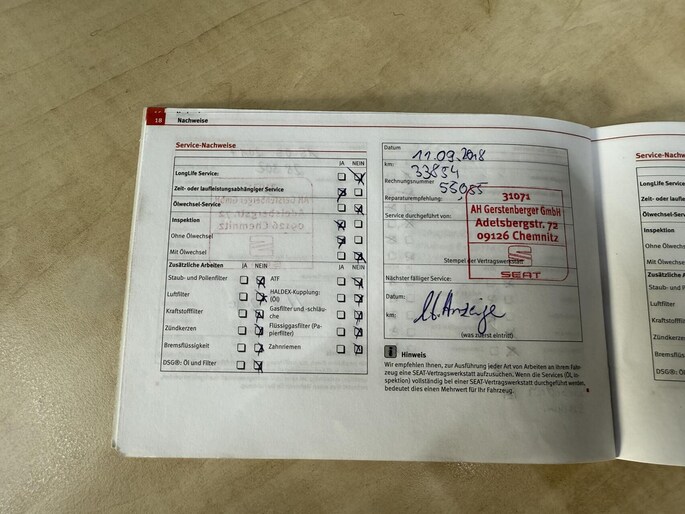 18 Nachweise
Service-Nachweise
JA NEIN
LongLife Service:
Zeit- oder laufleistungsabhängiger Service
Ölwechsel-Service
Inspektion
Ohne Ölwechsel
Mit Ölwechsel
Zusätzliche Arbeiten JA NEIN JA NEIN
Staub- und Pollenfilter
Luftfilter
Kraftstofffilter
Zündkerzen
Bremsflüssigkeit
DSG®: Öl und Filter
ATF
HALDEX-Kupplung:
(Öl)
Gasfilter und -schläu-
che
Flüssiggasfilter (Pa-
pierfilter)
Zahnriemen
Datum
11.09.2018
km:
33854
Rechnungsnummer
55085
Reparaturempfehlung:
Service durchgeführt von:
31071
AH Gerstenberger GmbH
Adelsbergstr. 72
09126 Chemnitz
SEAT
Stempel der Vertragswerkstatt
Nächster fälliger Service:
Datum:
km:
lt. Anzeige
(was zuerst eintritt)
Hinweis
Wir empfehlen Ihnen, zur Ausführung jeder Art von Arbeiten an Ihrem Fahr-
zeug eine SEAT-Vertragswerkstatt aufzusuchen. Wenn die Services (Öl, In-
spektion) vollständig bei einer SEAT-Vertragswerkstatt durchgeführt werden,
bedeutet dies einen Mehrwert für Ihr Fahrzeug.
Service-Nachw
LongLife Service:
Zeit- oder laufle
Ölwechsel-Servi
Inspektion
Ohne Ölwechsel
Mit Ölwechsel
Zusätzliche Arb
Staub- und Poll
Luftfilter
Kraftstofffilter
Zündkerzen
Bremsflüssigkei
DSG®: Öl und F